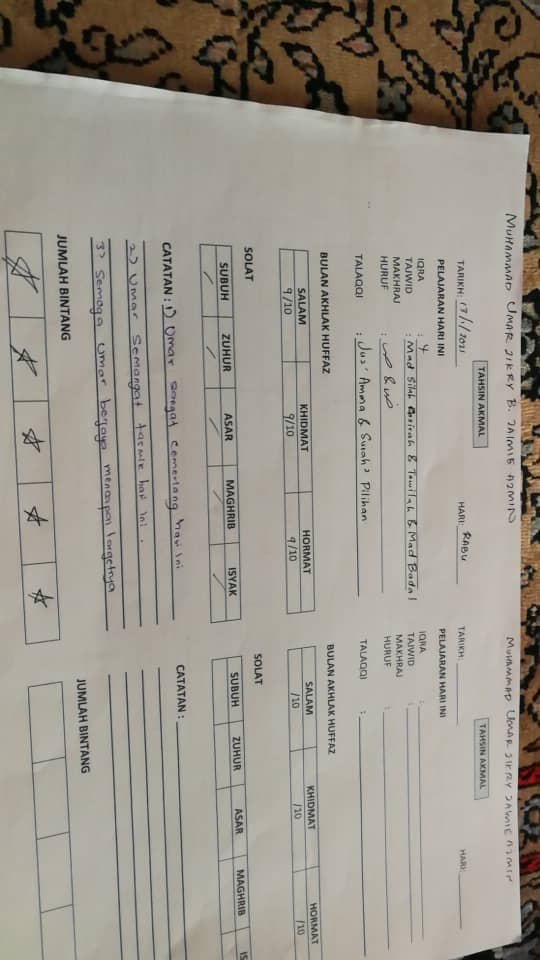 MUHAMMAD UMAR ZIKRY B. JAIMIE AZMIN
TAHSIN AKMAL
TARIKH: 13/1/2021 HARI: RABU
PELAJARAN HARI INI
IQRA : 4
TAJWID : Mad Silah Qasirah & Tawilah & Mad Badal
MAKHRAJ
HURUF : ص & ض
TALAQQI : Juz' Amma & Surah² Pilihan
BULAN AKHLAK HUFFAZ
SALAM KHIDMAT HORMAT
9/10 9/10 9/10
SOLAT
SUBUH ZUHUR ASAR MAGHRIB ISYAK
/ / / / /
CATATAN : 1) Umar sangat cemerlang hari ini
2) Umar semangat tasmik hari ini.
3) Semoga Umar berjaya mencapai
JUMLAH BINTANG
MUHAMMAD UMAR ZIKRY JAIMIE AZMIN
TAHSIN AKMAL
TARIKH: HARI:
PELAJARAN HARI INI
IQRA :
TAJWID :
MAKHRAJ
HURUF :
TALAQQI :
BULAN AKHLAK HUFFAZ
SALAM KHIDMAT HORMAT
/10 /10 /10
SOLAT
SUBUH ZUHUR ASAR MAGHRIB IS
CATATAN :
JUMLAH BINTANG